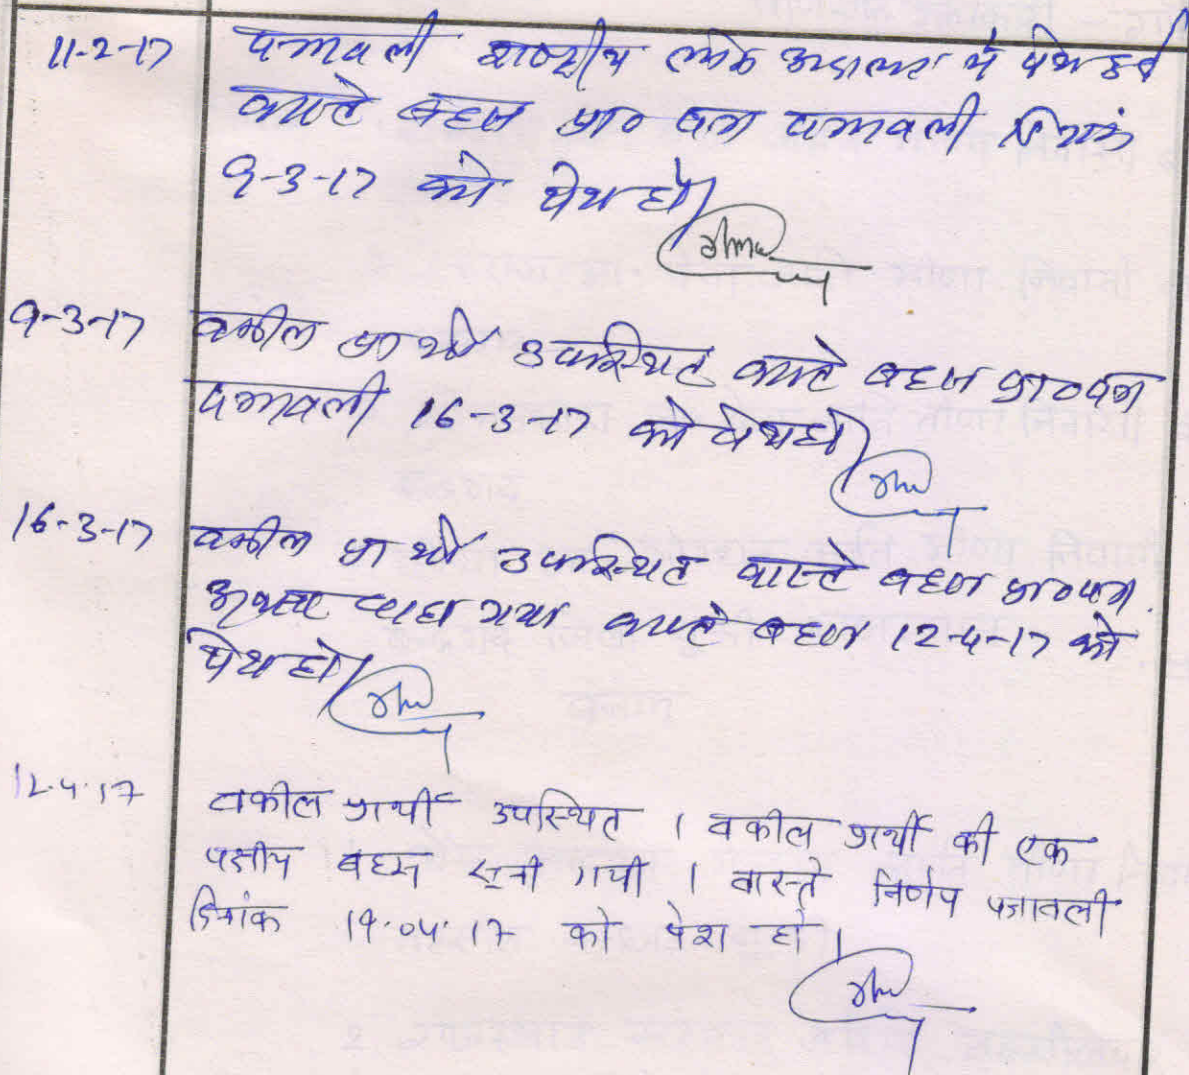 11-2-17 पत्रावली राष्ट्रीय लोक अदालत में पेश हुई
वास्ते बहस प्रा० पत्र पत्रावली दिनांक
9-3-17 को पेश हो।
9-3-17 वकील प्रार्थी उपस्थित वास्ते बहस प्रा० पत्र
पत्रावली 16-3-17 को पेश हो।
16-3-17 वकील प्रार्थी उपस्थित वास्ते बहस प्रा० पत्र.
चाहा गया वास्ते बहस 12-4-17 को
पेश हो।
12.4.17 वकील प्रार्थी उपस्थित । वकील प्रार्थी की एक
पक्षीय बहस सुनी गयी । वास्ते निर्णय पत्रावली
दिनांक 19.04.17 को पेश हो ।